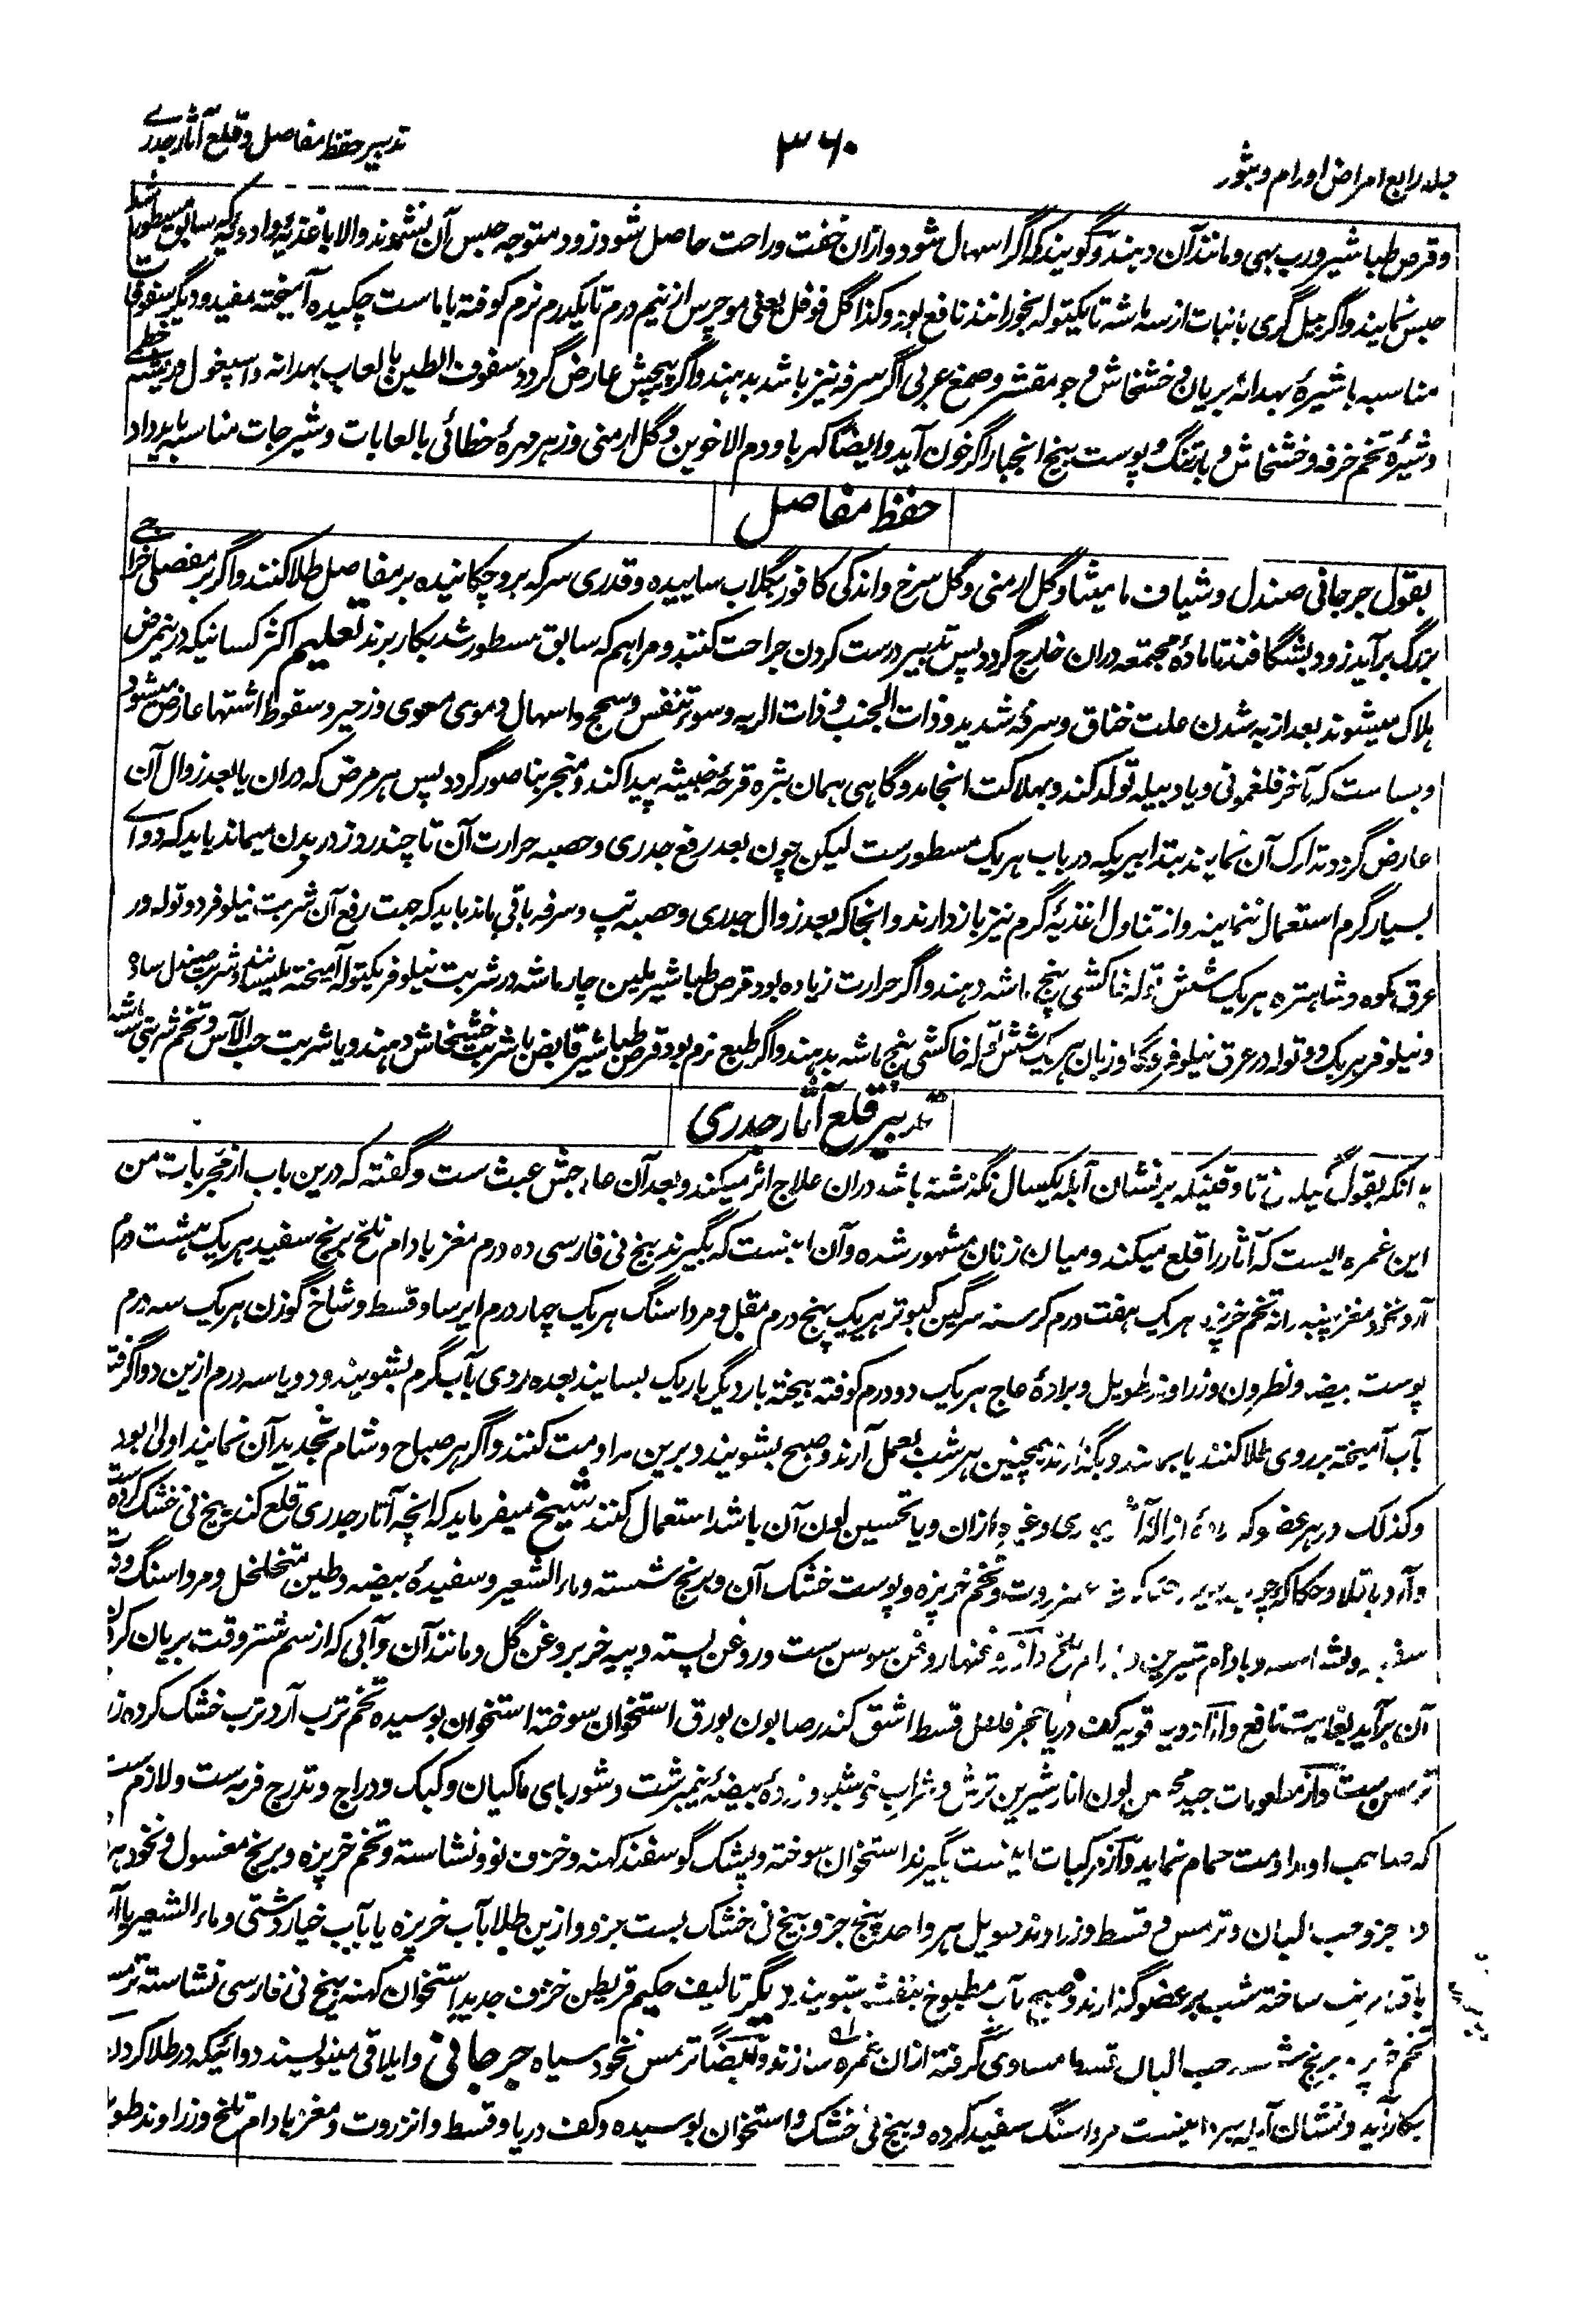 جلد رابع امراض اورام و بثور
۳۶۰
تدبیر حفظ مفاصل و قلع آثار جدری
و قرص طباشیر و رب بهی و مانند آن دهند و گویند که اگر اسهال شود و ازان خفت و راحت حاصل شود زود متوجه حبس آن نشوند والا باغذیه و ادویه که سابق مسطور شد
حبس نمایند و اگر بیل گری با نبات از سه ماشه تا یکتوله بخورانند نافع بود و کذا گل فوفل یعنی موچرس از نیم درم تا یکدرم نرم کوفته با ماست چکیده آمیخته مفید و دیگر سفوفات
مناسبه با شیرهٔ بهدانه بریان و خشخاش و جو مقشر و صمغ عربی اگر سرفه نیز باشد بدهند و اگر پیچش عارض گردد سفوف الطین با لعاب بهدانه و اسپغول و ریشه خطمی
و شیرهٔ تخم خرفه و خشخاش و بارتنگ و پوست بیخ انجبار اگر خون آید و ایضاً کهربا و دم الاخوین و گل ارمنی و زهر مهرهٔ خطائی بالعابات و شیرجات مناسبه باید داد
حفظ مفاصل
بقول جرجانی صندل و شیاف مامیثا و گل ارمنی و گل سرخ و اندکی کافور بگلاب ساییده و قدری سرکه برو چکانیده بر مفاصل طلا کنند و اگر بر مفصلی خراجی
بزرگ برآید زود بشگافند تا مادهٔ مجتمعه دران خارج گردد پس تدبیر درست کردن جراحت کنند و مراهم که سابق مسطور شد بکار برند تعلیم اکثر کسانیکه درینمرض
هلاک میشوند بعد از به شدن علت خناق و سرفهٔ شدید و ذات الجنب و ذات الریه و سوء تنفس و سحج و اسهال دموی معوی و زحیر و سقوط اشتها عارض میشود
و بساست که آخر فلغمونی و یا دبیله تولد کند و بهلاکت انجامد و گاهی همان بثره قرحهٔ خبیثه پیدا کند و منجر بناصور گردد پس هر مرض که دران یا بعد زوال آن
عارض گردد تدارک آن نمایند بتدابیریکه در باب هر یک مسطورست لیکن چون بعد رفع جدری و حصبه حرارت آن تا چند روز در بدن میماند باید که دوای
بسیار گرم استعمال ننمایند و از تناول اغذیهٔ گرم نیز باز دارند و انجا که بعد زوال جدری و حصبه تپ و سرفه باقی ماند باید که جهت رفع آن شربت نیلوفر دو توله در
عرق مکوه و شاهتره هر یک شش توله خاکشی پنج ماشه دهند و اگر حرارت زیاده بود قرص طباشیر ملین چار ماشه در شربت نیلوفر یکتوله آمیخته بلیسانند و شربت صندل ساده
و نیلوفر هر یک دو توله در عرق نیلوفر و گاوزبان هر یک شش توله خاکشی پنج ماشه بدهند و اگر طبع نرم بود قرص طباشیر قابض با شربت خشخاش دهند و یا شربت حب الآس و تخم شربتی
تدبیر قلع آثار جدری
بدانکه بقول تا وقتیکه بر نشان آبله یکسال نگذشته باشد دران علاج اثر میکند و بعد آن عبث ست و گفته که درین باب از مجربات من
این غمره ایست که آثار را قلع میکند و میان زنان مشهور شده و آن اینست که بگیرند بیخ نی فارسی ده درم مغز بادام تلخ برنج سفید هر یک هشت درم
آرد نخود مغز پنبه دانه تخم خرپزه هر یک هفت درم کرسنه سرگین کبوتر هر یک پنج درم مقل و مرداسنگ هر یک چهار درم ایرسا و قسط و شاخ گوزن هر یک سه درم
پوست بیضه و نطرون و زراوند طویل و برادهٔ عاج هر یک دو درم کوفته بیخته بار دیگر باریک بسایند بعده روی بآب گرم بشویند و دو یا سه درم ازین دوا گرفته
بآب آمیخته بر روی طلا کنند و بگذارند همچنین هر شب بعمل آرند و صبح بشویند و برین مداومت کنند و اگر هر صباح و شام تجدید آن نمایند اولی بود
و کذلک در هر عضو که ارادهٔ ازالهٔ آثار جدری و غیره ازان و یا تحسین لون آن باشد استعمال کنند شیخ میفرماید که انچه آثار جدری قلع کند بیخ نی خشک کرده ست
و آرد باقلا و حکاکه انزروت و تخم خرپزه و پوست خشک آن و برنج شسته و ماء الشعیر و سفیدهٔ بیضه و طین متخلخل و مرداسنگ
و نشاسته و بادام شیرین و بادام تلخ و از روغنها روغن سوسن ست و روغن پسته و پیه خر بروغن گل و مانند آن و آبی که از سم شتر وقت بریان کردن
آن برآید بغایت نافع و از ادویه قویه کف دریا فلفل قسط اشق کندر صابون بورق استخوان سوخته استخوان بوسیده تخم ترب آرد ترب خشک کرده
ترمس ست و از مطعومات جیده محسن لون انار شیرین ترش و شراب و زردهٔ بیضهٔ نیمبرشت و شوربای ماکیان و کبک و دراج و تدرج فربه ست و لازم ست
که صاحب او مداومت حمام نماید و از مرکبات اینست بگیرند استخوان سوخته و پشک گوسفند کهنه و خزف نو و نشاسته و تخم خرپزه و برنج مغسول و نخود
جزو حب البان و ترمس و قسط و زراوند طویل هر واحد پنج جزو بیخ نی خشک بست جزو و ازین طلا بآب خرپزه یا بآب خیار دشتی و ماء الشعیر یا آب
باقلا ساخته شب بر عضو گذارند و صبح بآب مطبوخ بنفشه بشویند دیگر تالیف حکیم قریطن خزف جدید استخوان کهنه بیخ نی فارسی نشاسته ترمس
تخم خرپزه برنج حب البان قسط مساوی گرفته ازان غمره سازند و ایضاً ترمس نخود سیاه جرجانی و ایلاقی مینویسند دوائیکه در طلا کردن
بکار آید و نشان آبله ببرد اینست مرداسنگ سفید کرده و بیخ نی خشک و استخوان بوسیده و کف دریا و قسط و انزروت و مغز بادام تلخ و زراوند طویل